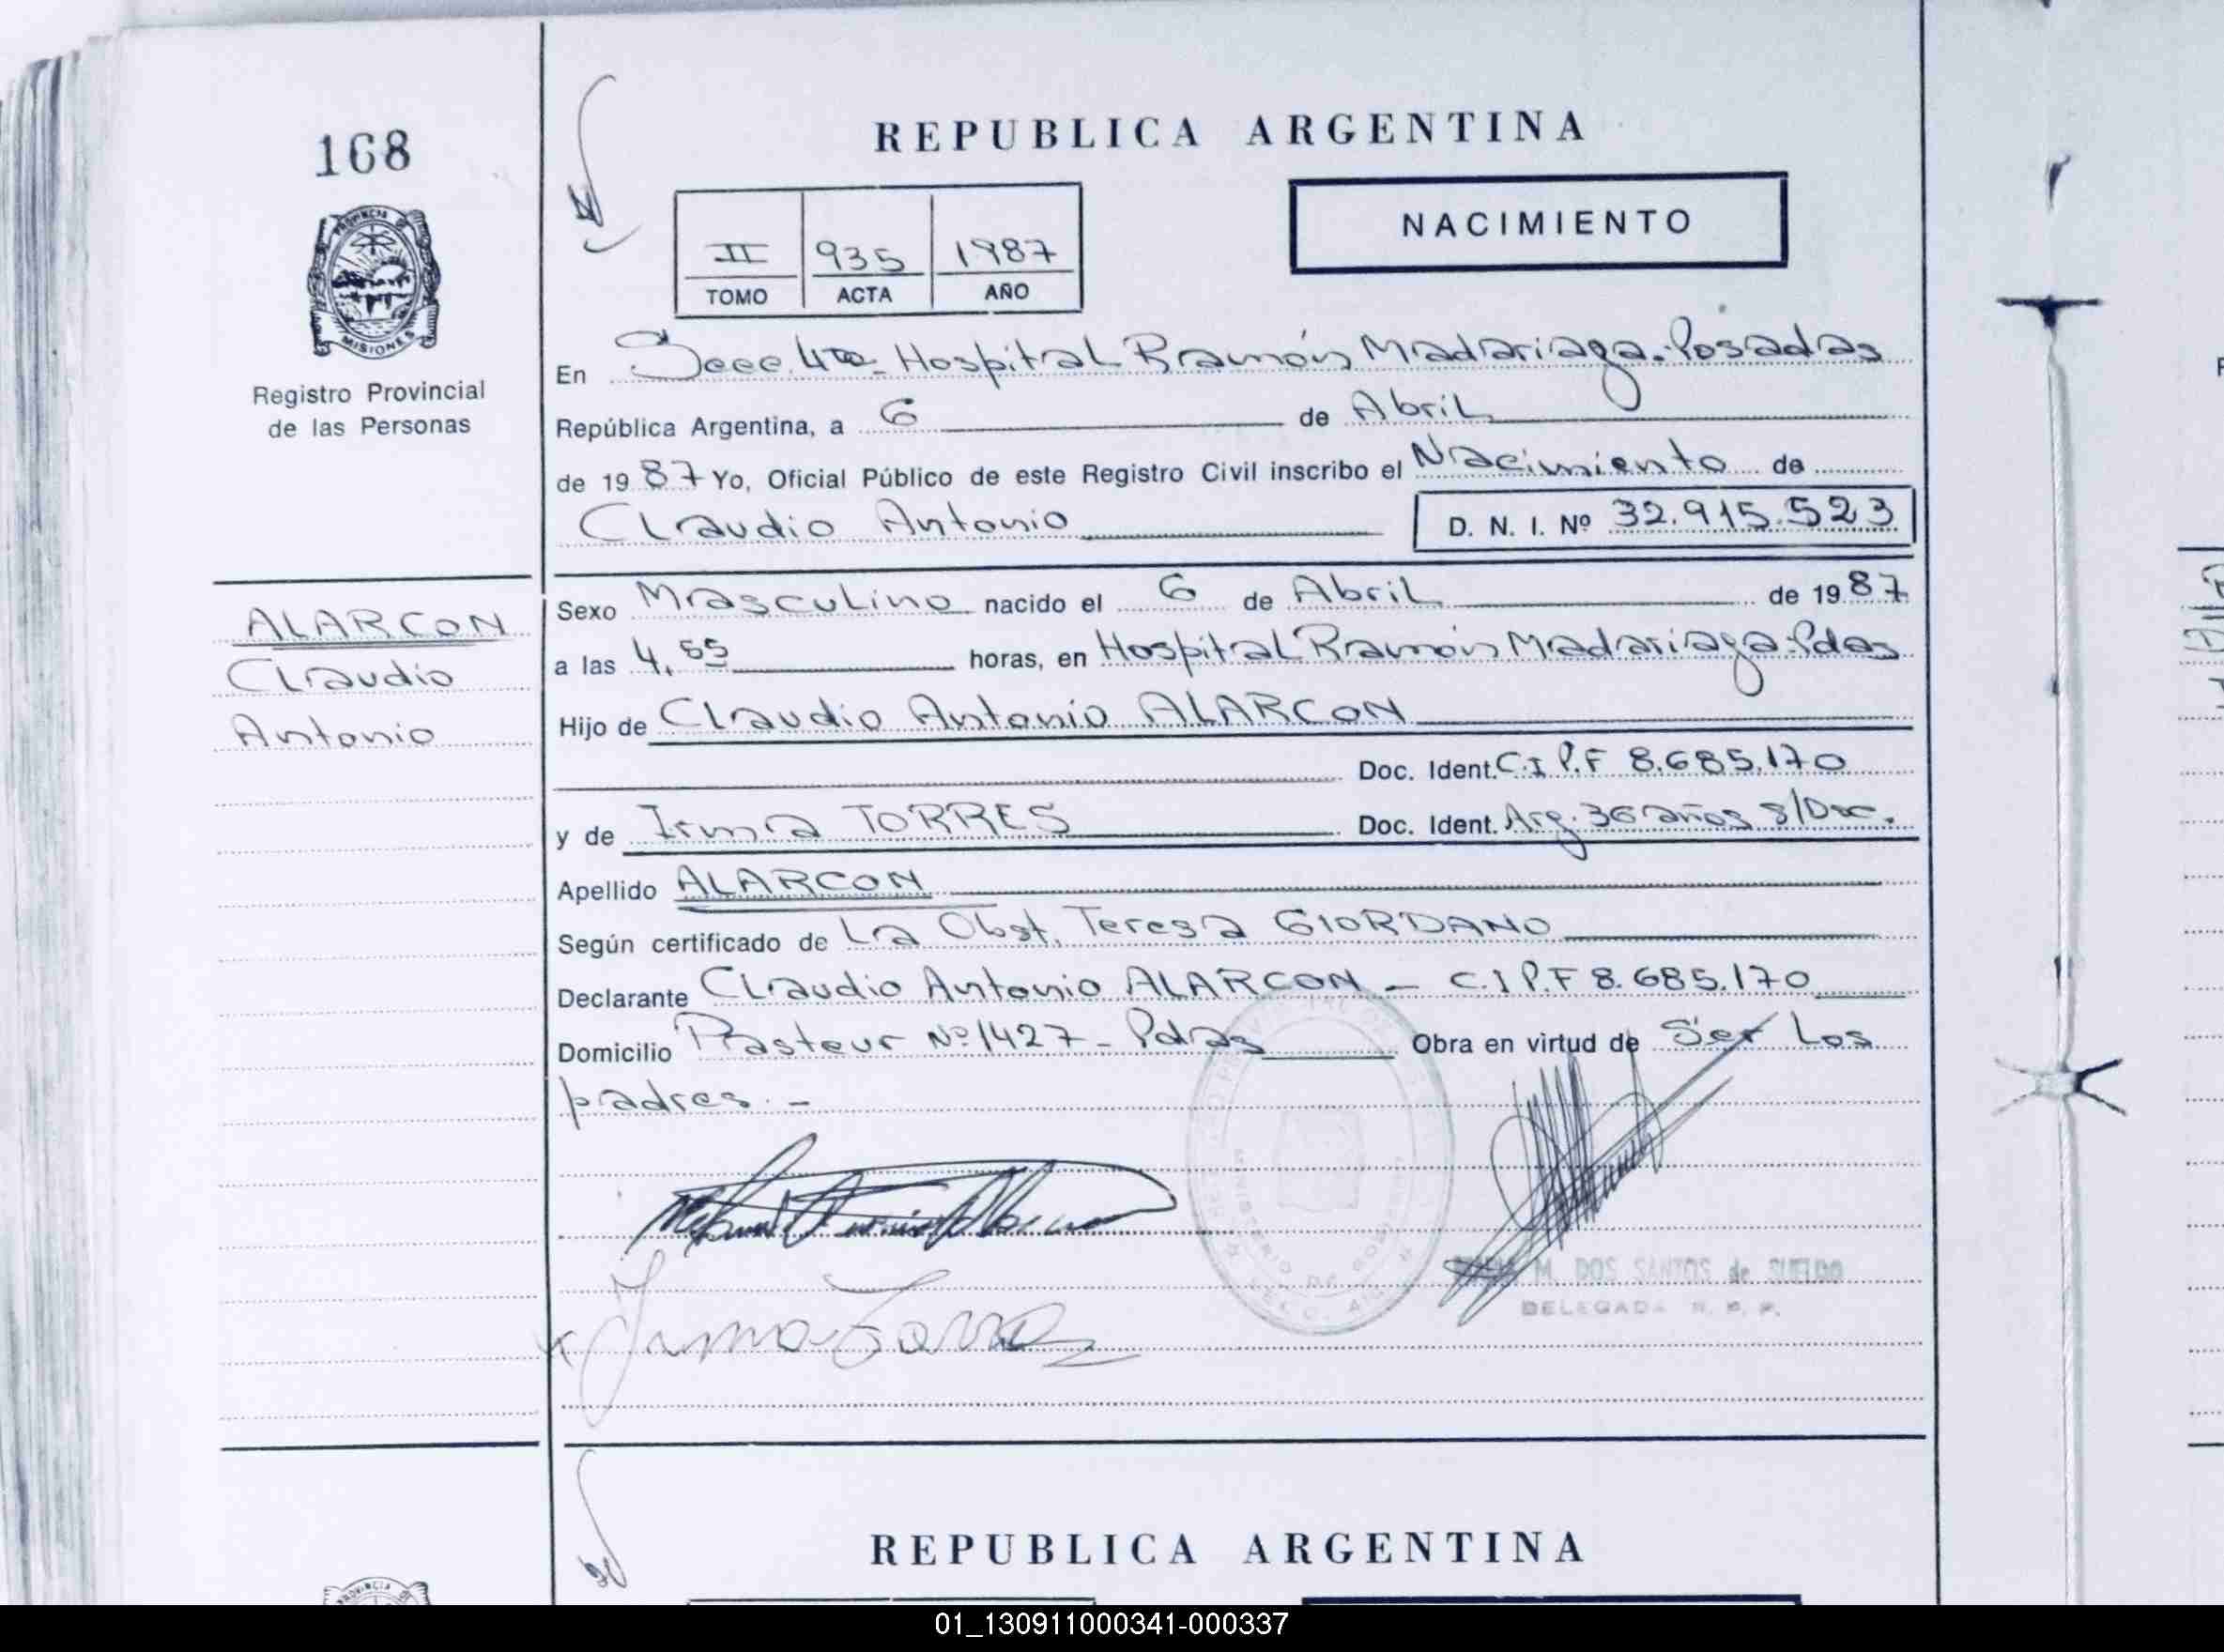 168
REPUBLICA ARGENTINA
NACIMIENTO
II 935 1987
TOMO ACTA AÑO
PROVINCIA DE
MISIONES
Registro Provincial
de las Personas
En Secc. 4ta - Hospital Ramón Madariaga - Posadas
República Argentina, a 6 de Abril
de 19 87 Yo, Oficial Público de este Registro Civil inscribo el Nacimiento de
Claudio Antonio D. N. I. Nº 32.915.523
ALARCON
Claudio
Antonio
Sexo Masculino nacido el 6 de Abril de 19 87
a las 4,55 horas, en Hospital Ramón Madariaga - Pdas
Hijo de Claudio Antonio ALARCON
Doc. Ident. C.I P.F 8.685.170
y de Irma TORRES Doc. Ident. Arg. 36 años S/Doc.
Apellido ALARCON
Según certificado de La Obst. Teresa GIORDANO
Declarante Claudio Antonio ALARCON - C.I P.F 8.685.170
Domicilio Pasteur Nº 1427 - Pdas Obra en virtud de Ser Los
padres. -
M. DOS SANTOS de SUELDO
DELEGADA R. P. P.
Irma Torres
REPUBLICA ARGENTINA
01_130911000341-000337